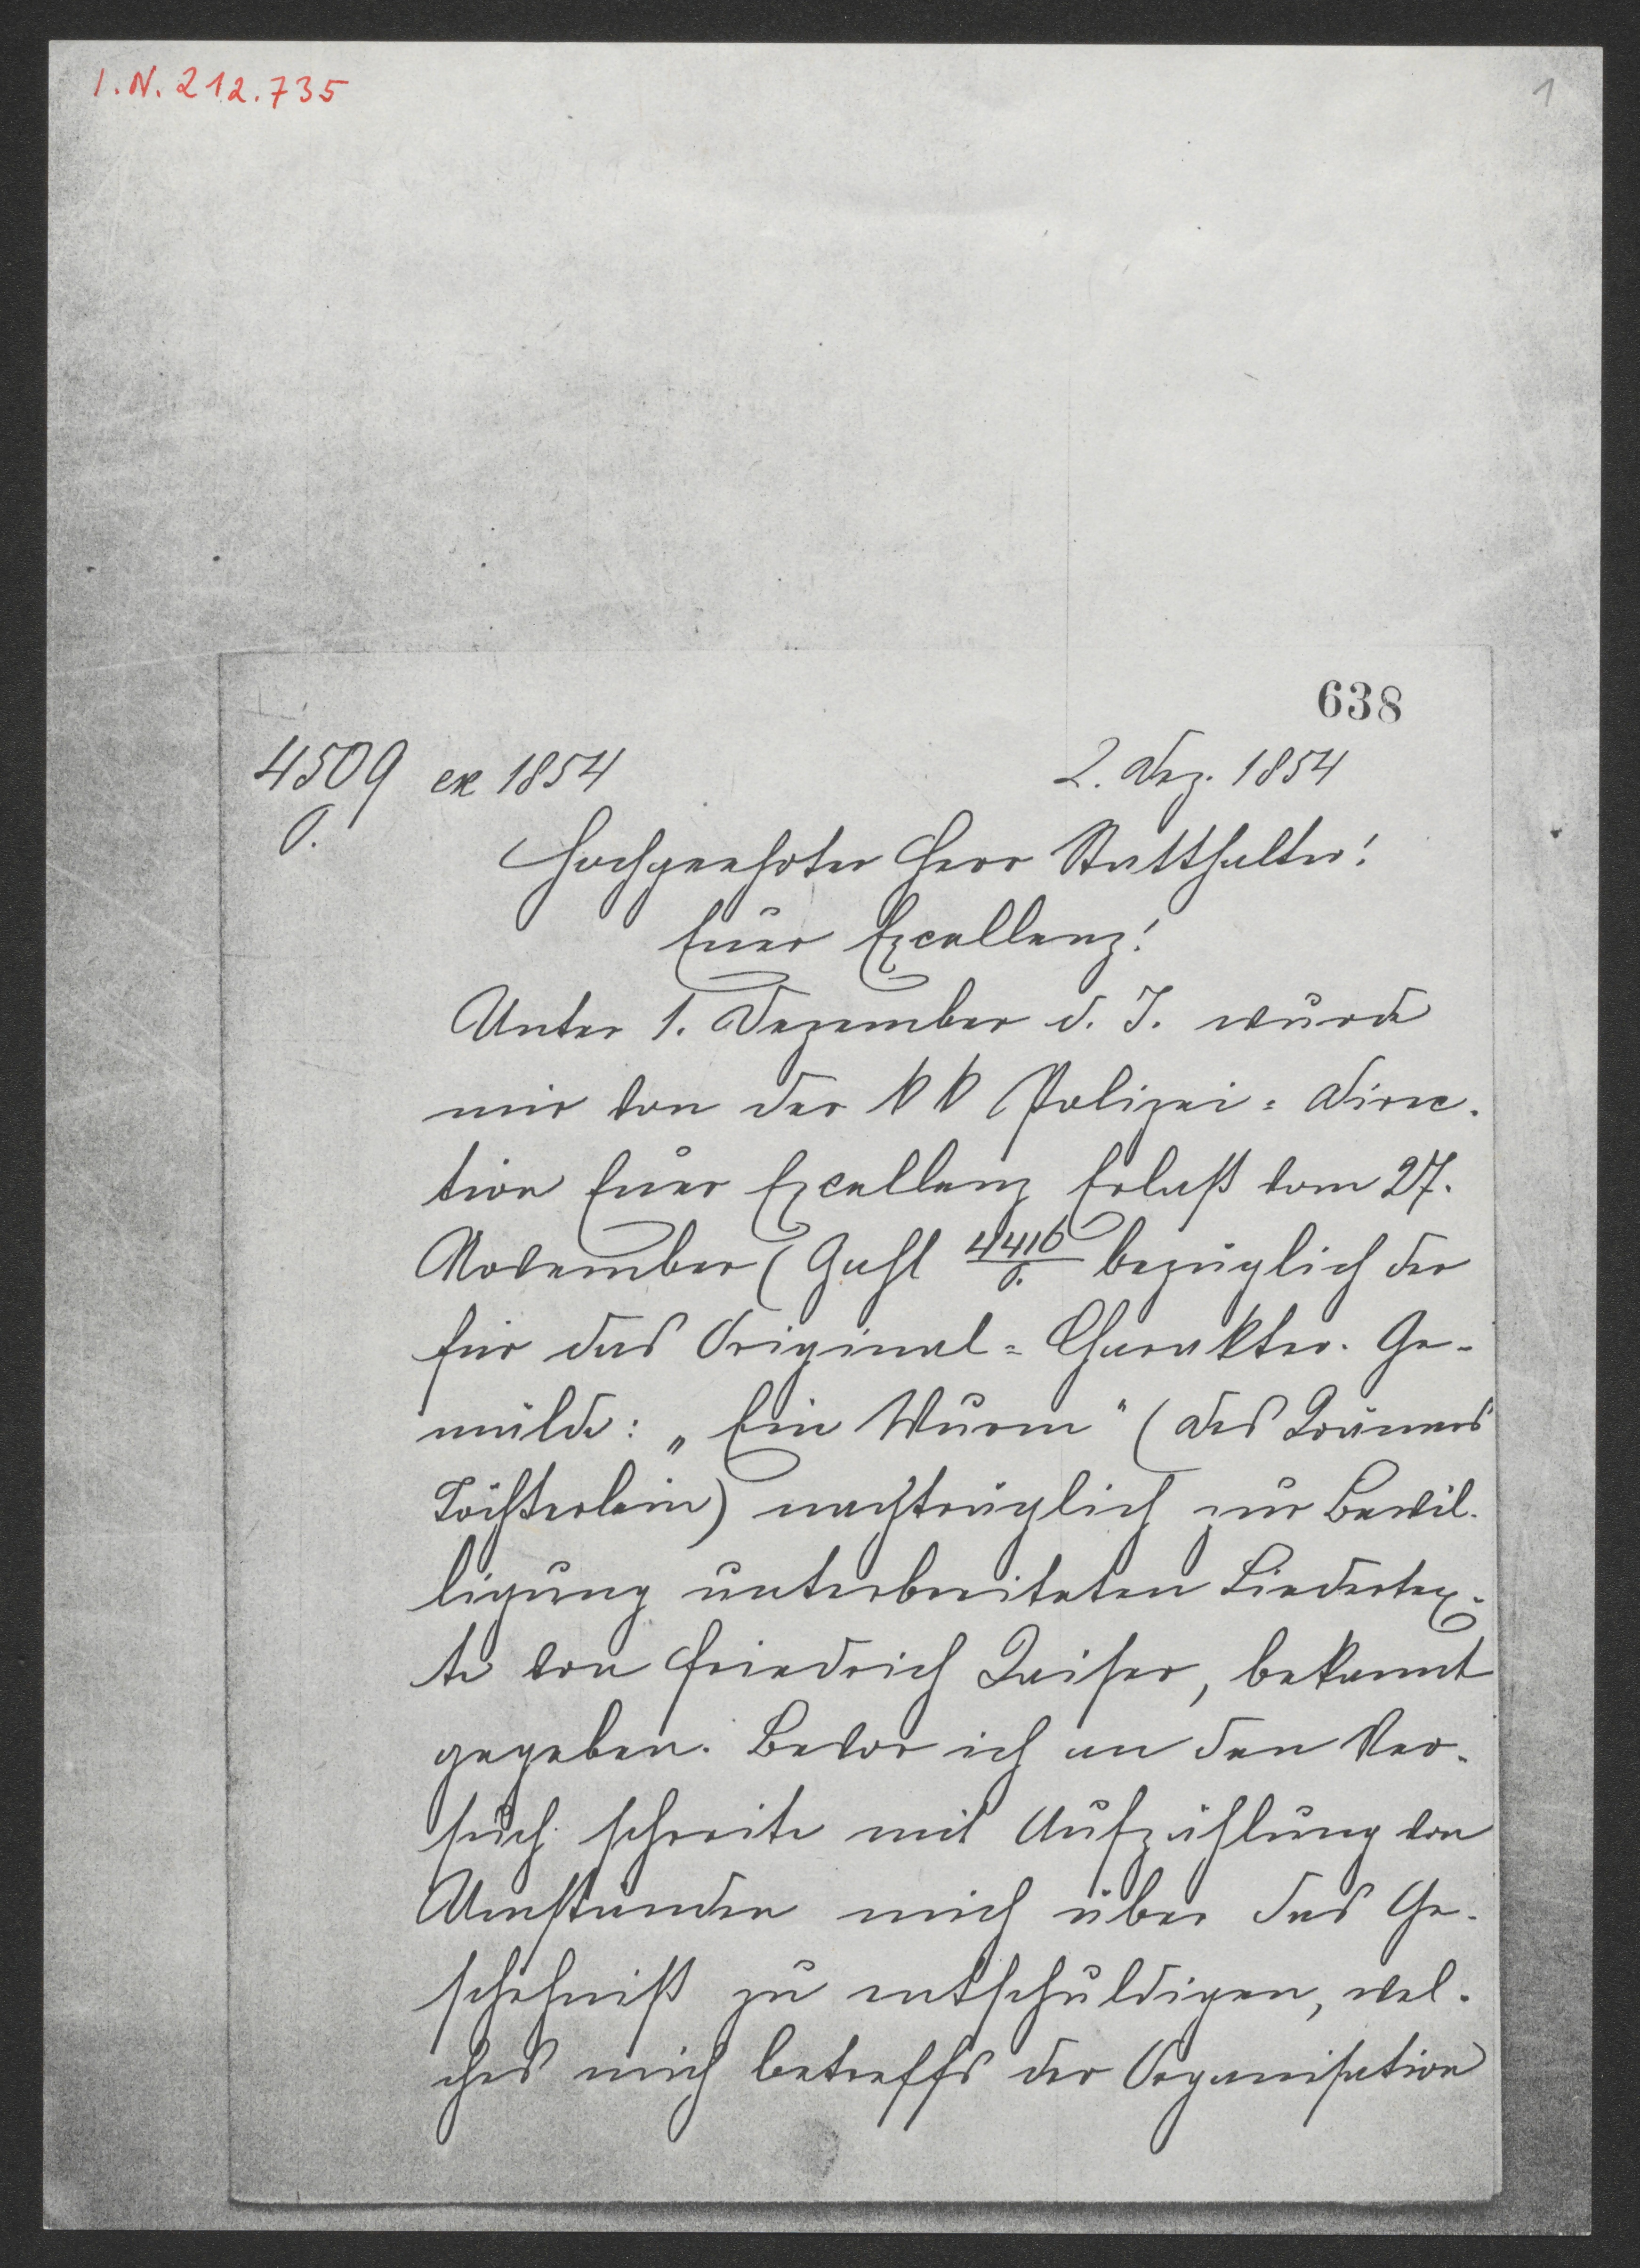 I.N. 212.735
1
638
4509 ex 1854 2. Dez. 1854
P.
Hochgeehrter Herr Statthalter!
Euer Excellenz!
Unter 1. Dezember d. J. wurde
mir von der kk Polizei=Direc-
tion Euer Excellenz Erlaß vom 27.
November (Zahl 4416/P. bezüglich der
für das Original=Charakter-Ge-
mälde: „Ein Wurm" (des Krämers
Töchterlein) nachträglich zur Bewil-
ligung unterbreiteten Liedertex-
te von Friedrich Kaiser, bekannt
gegeben. Bevor ich an den Ver-
such schreite mit Aufzählung von
Umständen mich über das Ge-
schehniß zu entschuldigen, wel-
ches mich betreffs der Organisation